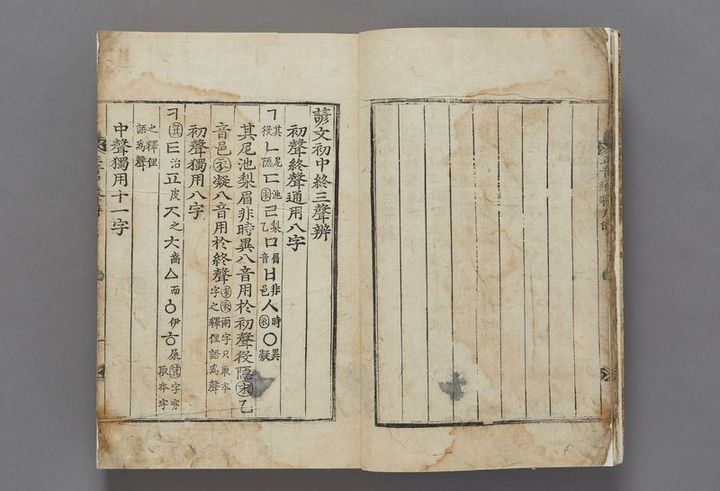 諺文初中終三聲辨
初聲終聲通用八字
ㄱ其役ㄴ尼隱ㄷ池末ㄹ梨乙ㅁ眉音ㅂ非邑ㅅ時衣ㆁ異凝
其尼池梨眉非時異八音用於初聲役隱末乙
音邑衣凝八音用於終聲末衣兩字只取本字之釋俚語爲聲
初聲獨用八字
ㅋ箕ㅌ治ㅍ皮ㅈ之ㅊ齒ㅿ而ㅇ伊ㅎ屎箕字亦取本字
之釋俚語爲聲
中聲獨用十一字